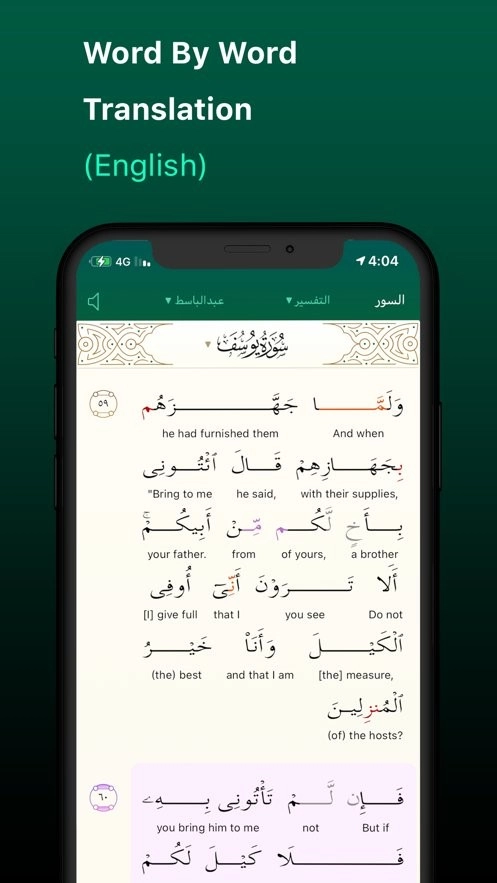 Word By Word
Translation
(English)
4G 4:04
السور التفسير ▼ عبدالباسط ▼
سُورَةُ يُوسُفَ ▼
وَلَمَّا جَهَّزَهُم ٥٩
And when he had furnished them
بِجَهَازِهِمْ قَالَ ٱئْتُونِى
"Bring to me he said, with their supplies,
بِأَخٍ لَّكُم مِّنْ أَبِيكُمْ ۚ
your father. from of yours, a brother
أَلَا تَرَوْنَ أَنِّىٓ أُوفِى
[I] give full that I you see Do not
ٱلْكَيْلَ وَأَنَا۠ خَيْرُ
(the) best and that I am [the] measure,
ٱلْمُنزِلِينَ
(of) the hosts?
فَإِن لَّمْ تَأْتُونِى بِهِۦ ٦٠
you bring him to me not But if
فَلَا كَيْلَ لَكُمْ